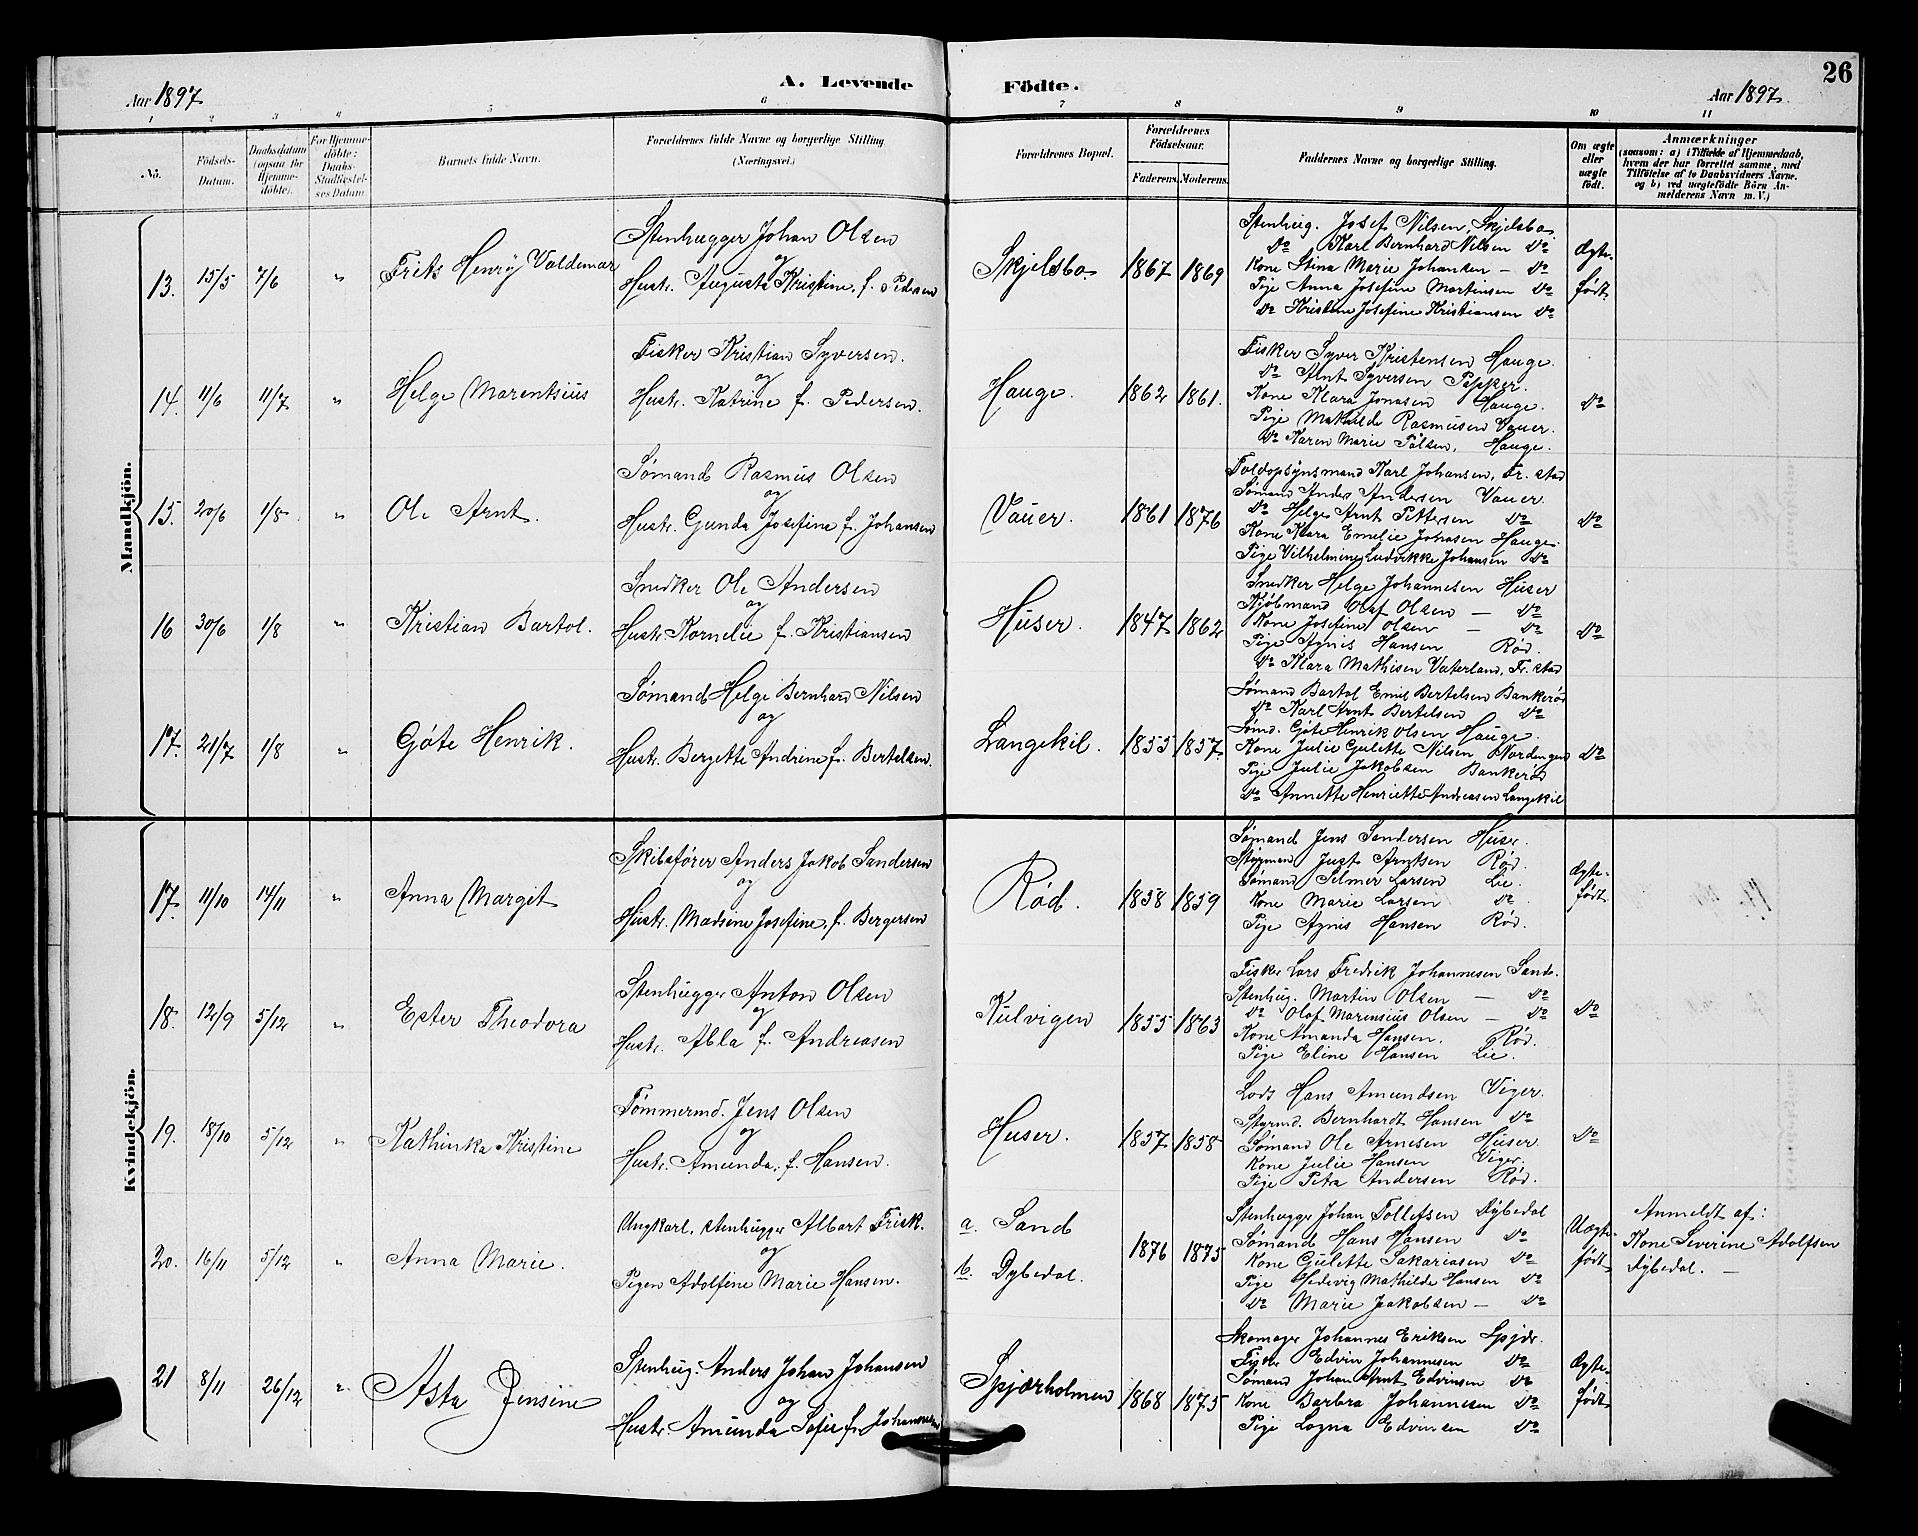 26
A. Levende Födte.
Aar 1897
Aar 1897.
1 2 3 4 5 6 7 8 9 10 11
No.
Födsels-Datum.
Daabsdatum (ogsaa for Hjemme-döbte).
For Hjemme-döbte: Daabs Stadfæstel-ses Datum
Barnets fulde Navn.
Forældrenes fulde Navne og borgerlige Stilling (Næringsvei.)
Forældrenes Bopæl.
Forældrenes Födselsaar.
Faderens. Moderens.
Faddernes Navne og borgerlige Stilling.
Om ægte eller uægte født.
Anmærkninger
(saasom: a) i Tilfælde af Hjemmedaab, hvem der har forrettet samme, med Tilföielse af to Daabsvidners Navne, og b) ved uægtefödte Börn An-melderens Navn m. V.)
Mandkjön.
13. 15/5 7/6 " Frits Henry Valdemar
Stenhugger Johan Olsen
og
Hustr. Augusta Kristine, f. Pedersen
Skjelsbo 1867 1869
Stenhug. Josef Nilsen, Skjelsbo
do Karl Bernhard Nilsen do
Kone Stina Marie Johansen – do
Pige Anna Josefine Martinsen do
do Kristine Josefine Kristiansen do
Ægte-
født
14. 11/6 11/7 " Helge Marentsius
Fisker Kristian Syversen.
og
Hustr. Katrine f. Pedersen.
Hauge. 1862 1861.
Fisker Syver Kristensen Hauge.
do Arnt Syversen Pepper.
Kone Klara Jonasen Hauge.
Pige Mathilde Rasmusen Vauer.
do Karen Marie Pålsen, Hauge.
do
15. 20/6 1/8 " Ole Arnt.
Sømand Rasmus Olsen
og
Hustr. Gunda Josefine f. Johansen
Vauer. 1861 1876
Toldopsynsmand Karl Johansen, Fr. stad
Sømand Anders Andersen Vauer.
do Helge Arnt Pettersen do
Kone Klara Emelie Johnsen Hauge.
Pige Vilhelmine Ludvikke Johansen do
do
16 30/6 1/8 " Kristian Bartol.
Snedker Ole Andersen
og
Hustr. Kornelie f. Kristiansen
Huser. 1847 1862
Snedker Helge Johannesen Huser
Kjøbmand Olaf Olsen – do
Kone Josefine Olsen – do
Pige Agnis Hansen Rød.
do Klara Mathisen Vaterland, Fr. stad
do
17. 21/7 1/8 " Gøte Henrik.
Sømand Helge Bernhard Nilsen
og
Hustr. Bergette Andrine f. Bertelsen.
Langekil. 1855 1857.
Sømand Bartol Emil Bertelsen Bankerød
do Karl Arnt Bertelsen do
Sømd. Gøte Henrik Olsen Hauge.
Kone Julie Gulette Nilsen Nordengen
Pige Julie Jakobsen Bankerød
do Annette Henriette Andreasen Langekil
do
Kvindekjön.
17. 11/10 14/11 " Anna Margit
Skibsfører Anders Jakob Sandersen
og
Hustr. Madsine Josefine, f. Bergersen
Rød. 1858 1859
Sømand Jens Sandersen Huser.
Styrman Just Arntsen Rød.
Sømand Selmer Larsen Lie.
Kone Marie Larsen do
Pige Agnis Hansen Rød.
Ægte-
født
18. 12/9 5/12 " Ester Theodora
Stenhugger Anton Olsen
og
Hustr. Abla f. Andreasen
Kulvigen 1855 1863
Fisker Lars Fredrik Johannesen Sand.
Stenhug. Martin Olsen – do
do Olaf Marensius Olsen – do
Kone Amanda Hansen. Rød.
Pige Eline Hansen Lie.
do
19. 18/10 5/12 " Kathinka Kristine
Tømmermd. Jens Olsen
og
Hustr. Amunda, f. Hansen.
Huser. 1857 1858
Lods Hans Amundsen Viger.
Styrmd. Bernhardt Hansen do
Sømand Ole Arnesen Huser.
Kone Julie Hansen Viger.
Pige Petra Andersen Rød.
do
20. 16/11 5/12 " Anna Marie.
Ungkarl, stenhugger Albart Frisk.
og
Pigen Adolfine Marie Hansen.
a. Sand
b. Dybedal. 1876 1875
Stenhugger Johan Tollefsen Dybedal
Sømand Hans Hansen do
Kone Gulette Sakariasen do
Pige Hedevig Mathilde Hansen do
do Marie Jakobsen – do
Uægte-
født
Anmeldt af:
Kone Severine Adolfsen
Dybedal. –
21 8/11 26/12 " Asta Jensine
Stenhug. Anders Johan Johansen
og
Hustr. Amunda Sofie f. Johannesen
Spjærholmen 1868 1875
Skomager Johannes Eriksen Spjær.
Fisker Edvin Johannesen do
Sømand Johan Arnt Edvinsen do
Kone Barbra Johannesen do
Pige Logna Edvinsen do
Ægte-
født